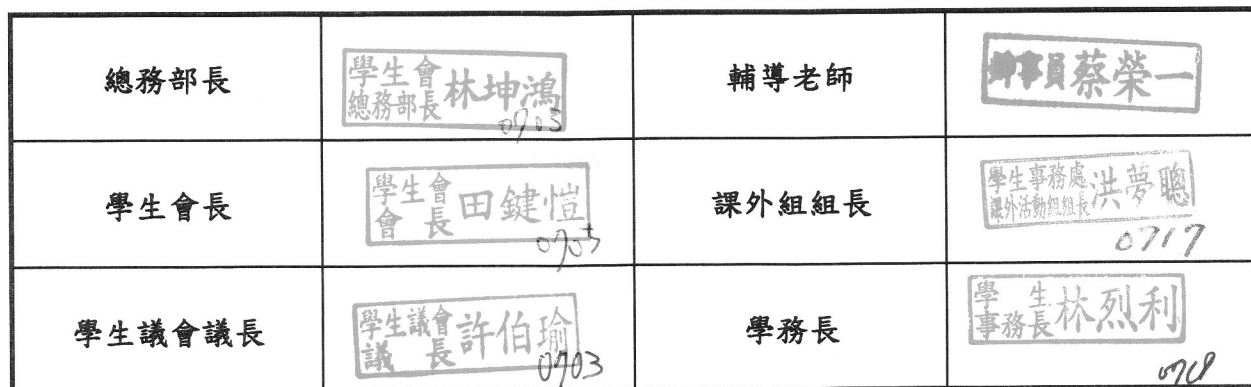 總務部長
學生會
總務部長
林坤鴻
0703
輔導老師
事員
蔡榮一
學生會長
學生會
會長
田鍵愷
0703
課外組組長
學生事務處
課外活動組組長
洪夢聰
0717
學生議會議長
學生議會
議長
許伯瑜
0703
學務長
學生
事務長
林烈利